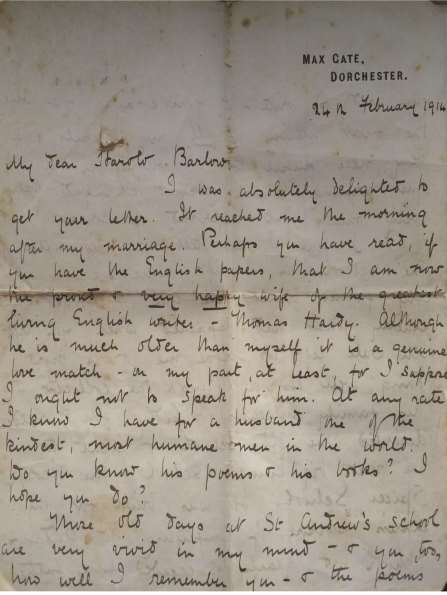 MAX GATE,
DORCHESTER.
24th February 1914
My dear Harold Barlow,
I was absolutely delighted to
get your letter. It reached me the morning
after my marriage. Perhaps you have read, if
you have the English papers, that I am now
the proud & very happy wife of the greatest
living English writer - Thomas Hardy. Although
he is much older than myself it is a genuine
love match - on my part, at least, for I suppose
I ought not to speak for him. At any rate
I know I have for a husband one of the
kindest, most humane men in the world.
Do you know his poems & his books? I
hope you do?
Those old days at St Andrew's School
are very vivid in my mind - & you too,
how well I remember you - & the poems